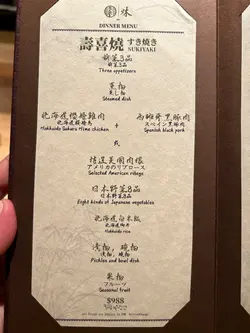 味
DINNER MENU
壽喜燒 すき焼き
SUKIYAKI
前菜3品
前菜3品
Three appetizers
蒸物
蒸し物
Steamed dish
北海道櫻姬雞肉
北海道桜姫鶏
Hokkaido Sakura Hime chicken
+
西班牙黑豚肉
スペイン黒豚肉
Spanish black pork
或
精選美國肉眼
アメリカのリブロース
Selected American ribeye
日本野菜8品
日本野菜8品
Eight kinds of Japanese vegetables
北海道白米飯
北海道御飯
Hokkaido rice
漬物，碗物
漬物，碗物
Pickles and bowl dish
果物
フルーツ
Seasonal fruit
$988